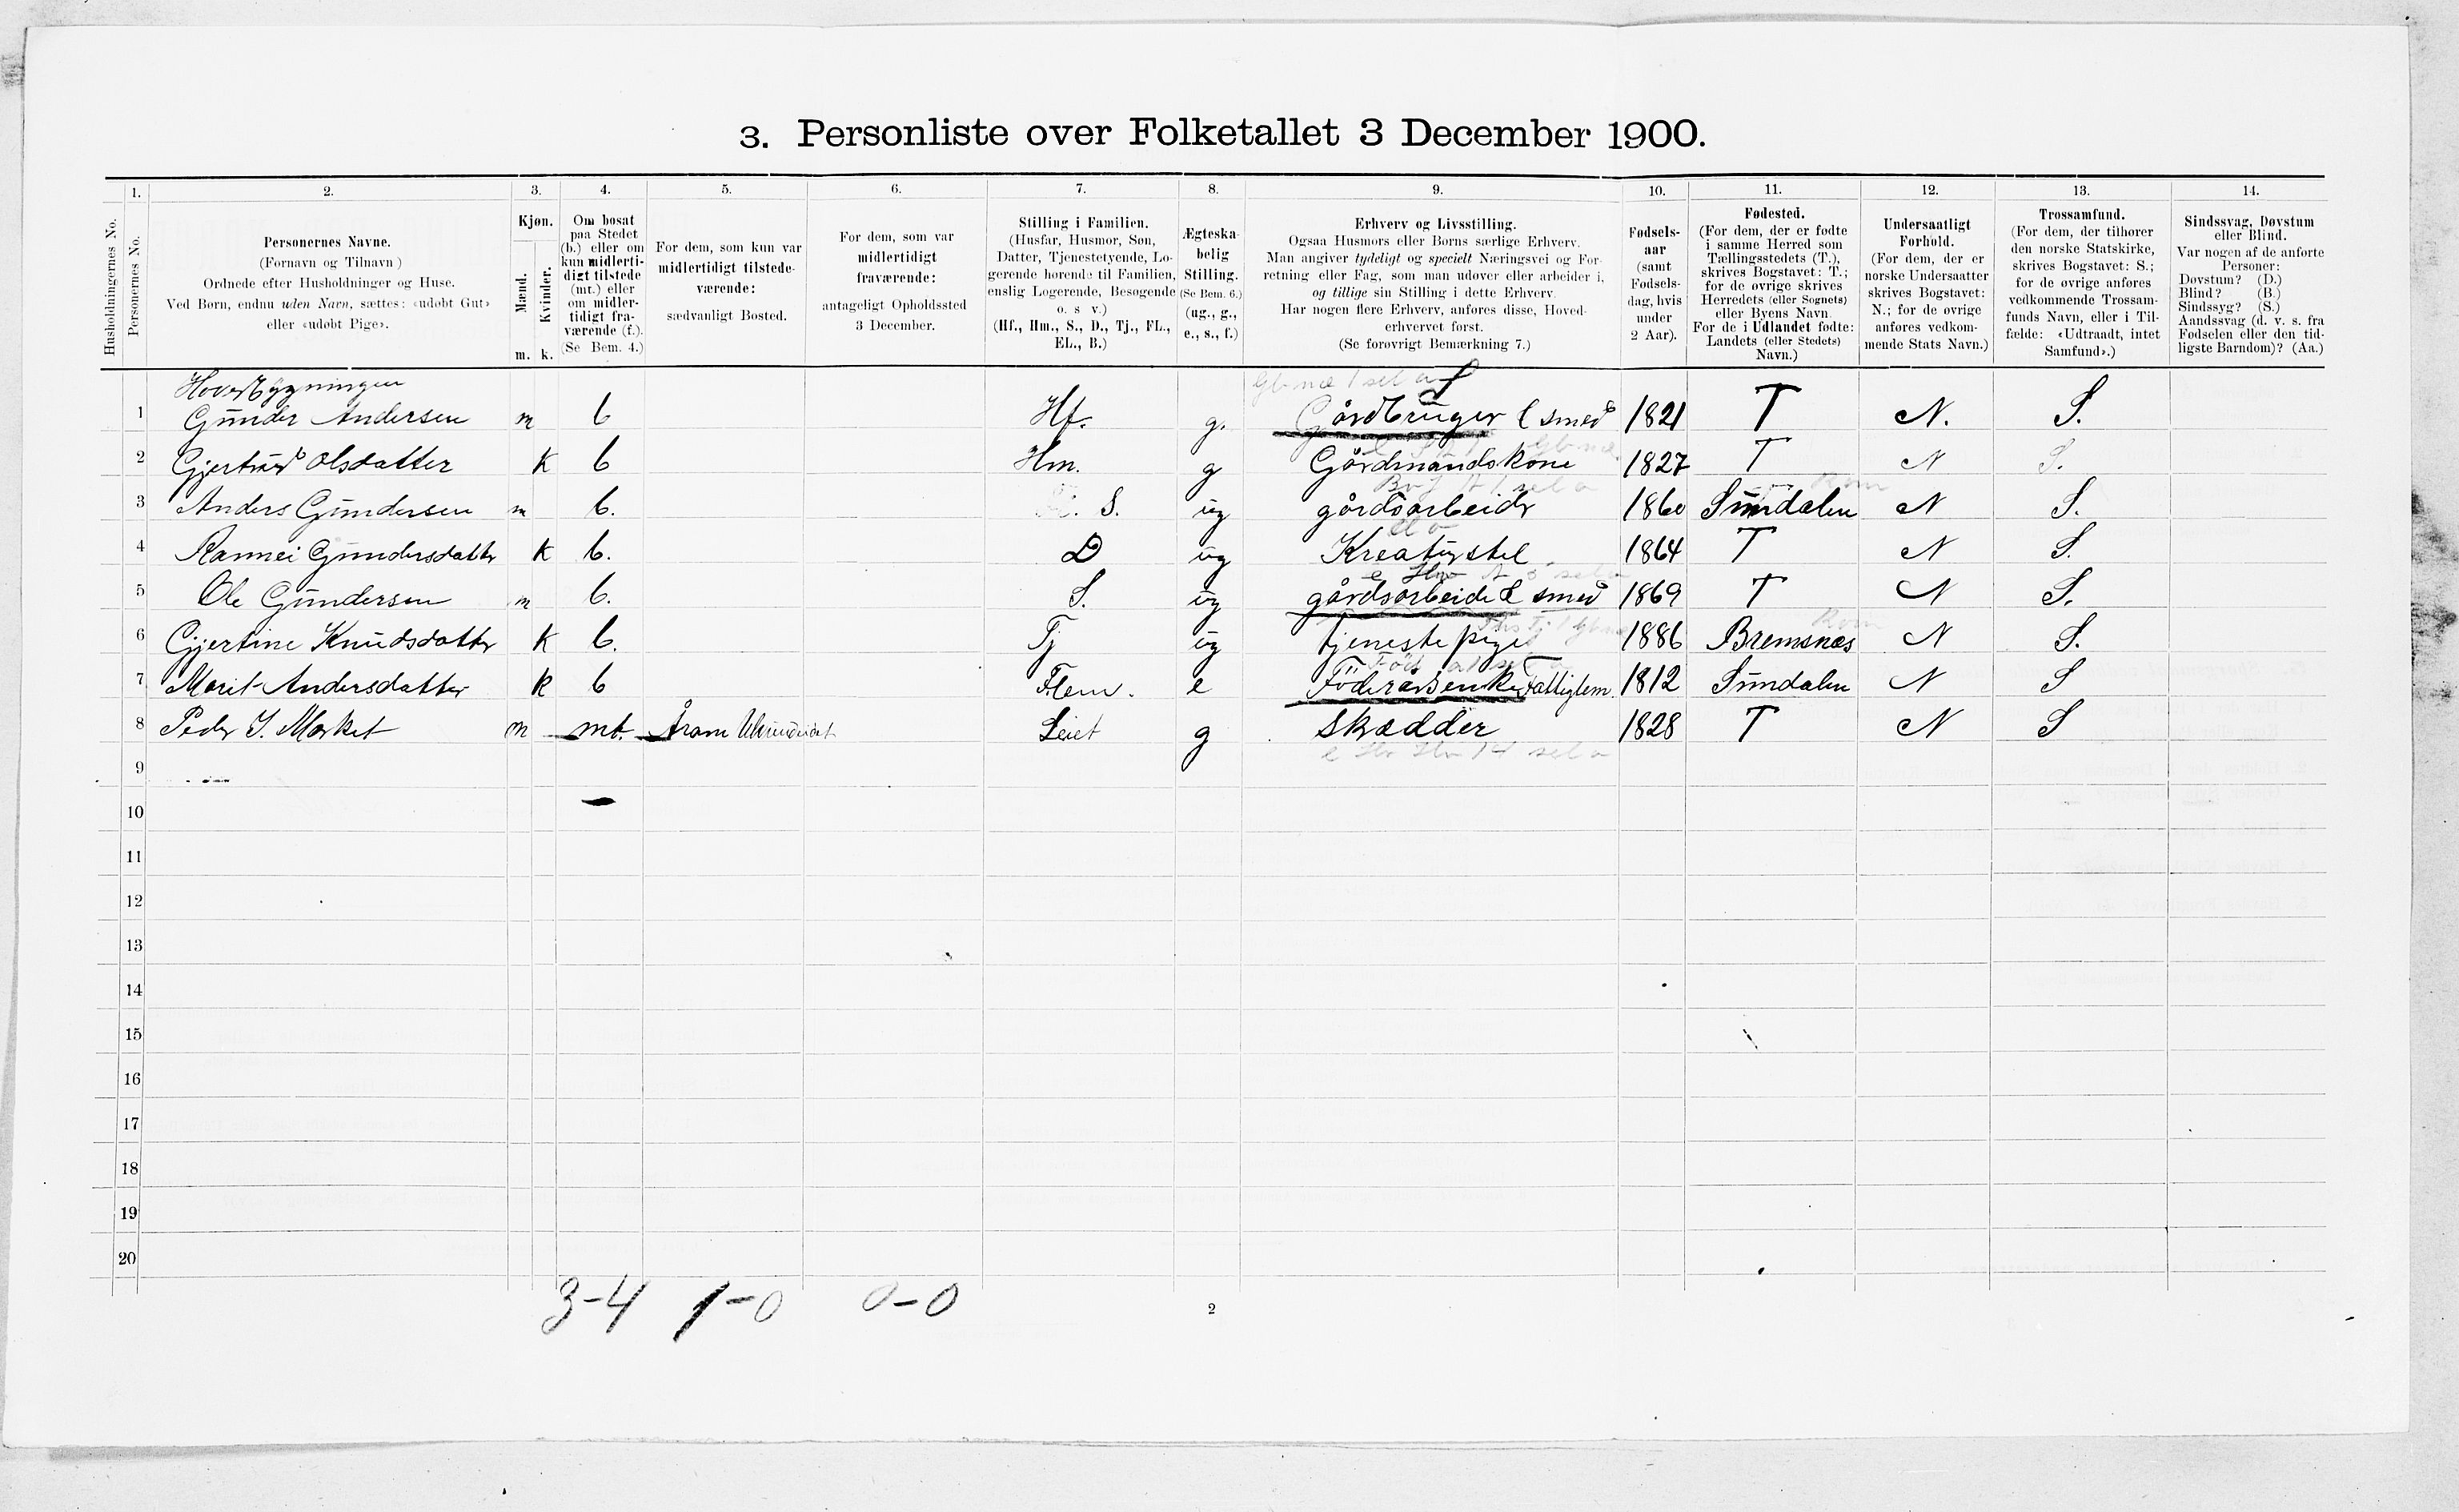 3. Personliste over Folketallet 3 December 1900.
1. 2. 3. 4. 5. 6. 7. 8. 9. 10. 11. 12. 13. 14.
Husholdningernes No.
Personernes No.
Personernes Navne.
(Fornavn og Tilnavn)
Ordnede efter Husholdninger og Huse.
Ved Børn, endnu uden Navn, sættes: «udøbt Gut»
eller «udøbt Pige».
Kjøn.
Mænd.
Kvinder.
m. k.
Om bosat
paa Stedet
(b.) eller om
kun midlerti-
digt tilstede
(mt.) eller
om midler-
tidigt fra-
værende (f.).
(Se Bem. 4.)
For dem, som kun var
midlertidigt tilstede-
værende:
sædvanligt Bosted.
For dem, som var
midlertidigt
fraværende:
antageligt Opholdssted
3 December.
Stilling i Familien.
(Husfar, Husmor, Søn,
Datter, Tjenestetyende, Lo-
gerende hørende til Familien,
enslig Logerende, Besøgende
o. s v.)
(Hf., Hm., S., D., Tj., FL.,
EL., B.)
Ægteska-
belig
Stilling.
(Se Bem. 6.)
(ug., g.,
e., s., f.)
Erhverv og Livsstilling.
Ogsaa Husmors eller Børns særlige Erhverv.
Man angiver tydeligt og specielt Næringsvei og For-
retning eller Fag, som man udøver eller arbeider i,
og tillige sin Stilling i dette Erhverv.
Har nogen flere Erhverv, anføres disse, Hoved-
erhvervet først.
(Se forøvrigt Bemærkning 7.)
Fødsels-
aar
(samt
Fødsels-
dag, hvis
under
2 Aar).
Fødested.
(For dem, der er fødte
i samme Herred som
Tællingsstedets (T.),
skrives Bogstavet: T.;
for de øvrige skrives
Herredets (eller Sognets)
eller Byens Navn.
For de i Udlandet fødte:
Landets (eller Stedets)
Navn.)
Undersaatligt
Forhold.
(For dem, der er
norske Undersaatter
skrives Bogstavet:
N.; for de øvrige
anføres vedkom-
mende Stats Navn.)
Trossamfund.
(For dem, der tilhører
den norske Statskirke,
skrives Bogstavet: S.;
for de øvrige anføres
vedkommende Trossam-
funds Navn, eller i Til-
fælde: «Udtraadt, intet
Samfund».)
Sindssvag, Døvstum
eller Blind.
Var nogen af de anførte
Personer:
Døvstum? (D.)
Blind? (B.)
Sindssyg? (S.)
Aandssvag (d. v. s. fra
Fødselen eller den tid-
ligste Barndom)? (Aa.)
Hovedbygningen
1 Gunder Andersen m b Hf. g. Gårdbruger & smed 1821 T N. S.
2 Gjertrud Olsdatter k b Hm. g Gårdmandskone 1827 T N S.
3 Anders Gundersen m b. S. ug gårdsarbeider 1860 Sundalen N S.
4 Rannei Gundersdatter k b. D ug Kreaturstel 1864 T N S.
5 Ole Gundersen m b. S. ug gårdsarbeide & smed 1869 T N S.
6 Gjertine Knudsdatter k b. Tj ug tjenestepige 1886 Bremsnæs N S.
7 Marit Andersdatter k b Flem. e Föderådsenke Fattiglem. 1812 Sundalen N S
8 Peder I. Market m mt. Leiet g Skrædder 1828 T N S
9
10
11
12
13
14
15
16
17
18
19
20
3-4 1-0 0-0
2